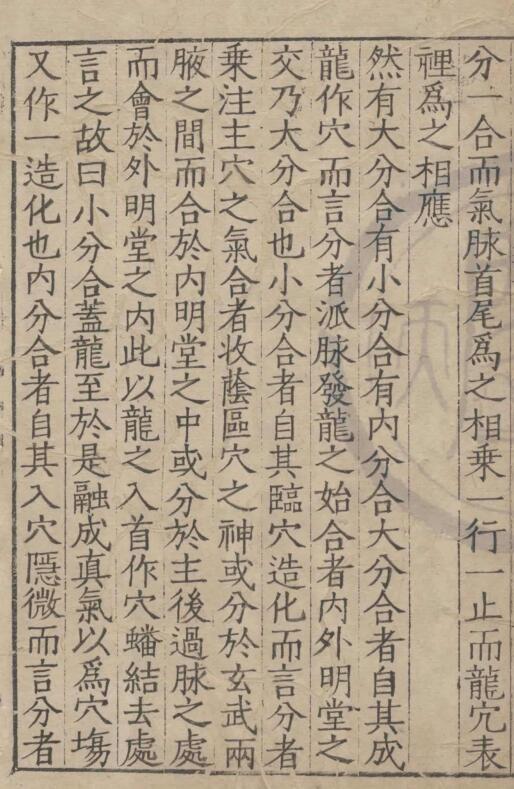 分一合而氣脉首尾爲之相乗一行一止而龍穴表
裡爲之相應
然有大分合有小分合有内分合大分合者自其成
龍作穴而言分者派脉發龍之始合者内外明堂之
交乃大分合也小分合者自其臨穴造化而言分者
乗注主穴之氣合者收蔭區穴之神或分於玄武兩
腋之間而合於内明堂之中或分於主後過脉之處
而會於外明堂之内此以龍之入首作穴蟠結去處
言之故曰小分合蓋龍至於是融成真氣以爲穴塲
又作一造化也内分合者自其入穴隱微而言分者